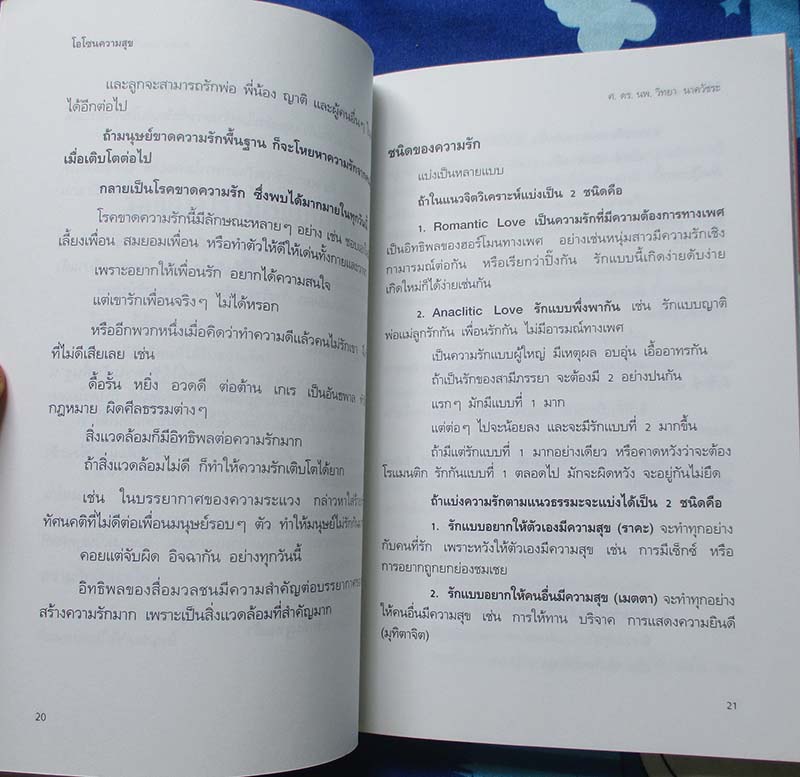 โอโซนความสุข
และลูกจะสามารถรักพ่อ พี่น้อง ญาติ และผู้คนอื่นๆ
ได้อีกต่อไป
ถ้ามนุษย์ขาดความรักพื้นฐาน ก็จะโหยหาความรัก
เมื่อเติบโตต่อไป
กลายเป็นโรคขาดความรัก ซึ่งพบได้มากมายในทุกวันนี้
โรคขาดความรักนี้มีลักษณะหลายๆ อย่าง เช่น ชอบ
เลี้ยงเพื่อน สมยอมเพื่อน หรือทำตัวให้ดีให้เด่นทั้งกายและ
เพราะอยากให้เพื่อนรัก อยากได้ความสนใจ
แต่เขารักเพื่อนจริงๆ ไม่ได้หรอก
หรืออีกพวกหนึ่งเมื่อคิดว่าทำความดีแล้วคนไม่รักเขา
ที่ไม่ดีเสียเลย เช่น
ดื้อรั้น หยิ่ง อวดดี ต่อต้าน เกเร เป็นอันธพาล
กฎหมาย ผิดศีลธรรมต่างๆ
สิ่งแวดล้อมก็มีอิทธิพลต่อความรักมาก
ถ้าสิ่งแวดล้อมไม่ดี ก็ทำให้ความรักเติบโตได้ยาก
เช่น ในบรรยากาศของความระแวง กล่าวหาใส่ร้าย
ทัศนคติที่ไม่ดีต่อเพื่อนมนุษย์รอบๆ ตัว ทำให้มนุษย์ไม่รักกัน
คอยแต่จับผิด อิจฉากัน อย่างทุกวันนี้
อิทธิพลของสื่อมวลชนมีความสำคัญต่อบรรยากาศ
สร้างความรักมาก เพราะเป็นสิ่งแวดล้อมที่สำคัญมาก
20
ศ. ดร. นพ. วิทยา นาควัชระ
ชนิดของความรัก
แบ่งเป็นหลายแบบ
ถ้าในแนวจิตวิเคราะห์แบ่งเป็น 2 ชนิดคือ
1. Romantic Love เป็นความรักที่มีความต้องการทางเพศ
เป็นอิทธิพลของฮอร์โมนทางเพศ อย่างเช่นหนุ่มสาวมีความรักเชิง
กามารมณ์ต่อกัน หรือเรียกว่าปิ๊งกัน รักแบบนี้เกิดง่ายดับง่าย
เกิดใหม่ก็ได้ง่ายเช่นกัน
2. Anaclitic Love รักแบบพึ่งพากัน เช่น รักแบบญาติ
พ่อแม่ลูกรักกัน เพื่อนรักกัน ไม่มีอารมณ์ทางเพศ
เป็นความรักแบบผู้ใหญ่ มีเหตุผล อบอุ่น เอื้ออาทรกัน
ถ้าเป็นรักของสามีภรรยา จะต้องมี 2 อย่างปนกัน
แรกๆ มักมีแบบที่ 1 มาก
แต่ต่อๆ ไปจะน้อยลง และจะมีรักแบบที่ 2 มากขึ้น
ถ้ามีแต่รักแบบที่ 1 มากอย่างเดียว หรือคาดหวังว่าจะต้อง
โรแมนติก รักกันแบบที่ 1 ตลอดไป มักจะผิดหวัง จะอยู่กันไม่ยืด
ถ้าแบ่งความรักตามแนวธรรมะจะแบ่งได้เป็น 2 ชนิดคือ
1. รักแบบอยากให้ตัวเองมีความสุข (ราคะ) จะทำทุกอย่าง
กับคนที่รัก เพราะหวังให้ตัวเองมีความสุข เช่น การมีเซ็กซ์ หรือ
การอยากถูกยกย่องชมเชย
2. รักแบบอยากให้คนอื่นมีความสุข (เมตตา) จะทำทุกอย่าง
ให้คนอื่นมีความสุข เช่น การให้ทาน บริจาค การแสดงความยินดี
(มุทิตาจิต)
21